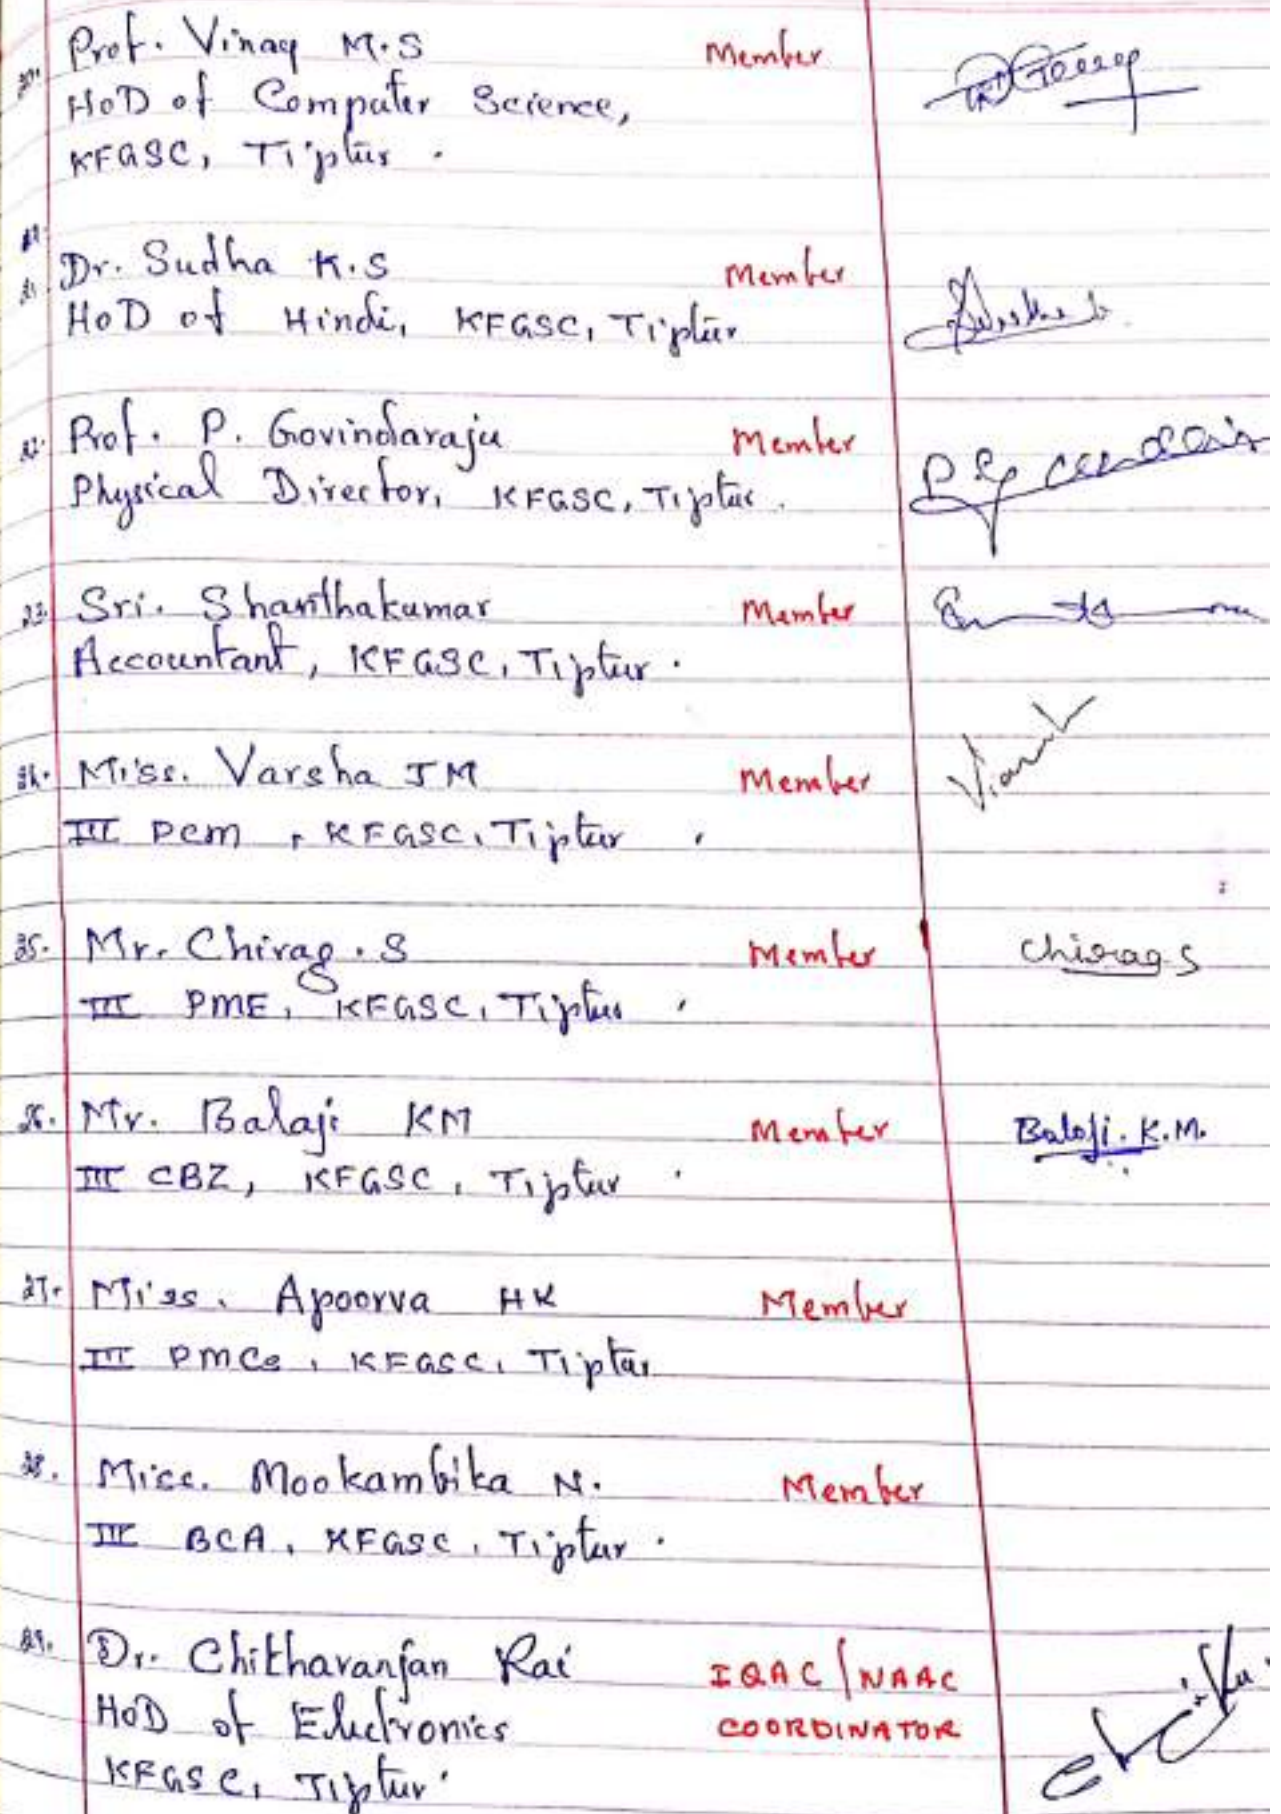 20. Prof. Vinay M.S Member
HoD of Computer Science,
KFGSC, Tiptur.
21. Dr. Sudha K.S Member
HoD of Hindi, KFGSC, Tiptur
22. Prof. P. Govindaraju Member
Physical Director, KFGSC, Tiptur.
23. Sri. Shanthakumar Member
Accountant, KFGSC, Tiptur.
24. Miss. Varsha JM Member
III PCM, KFGSC, Tiptur.
25. Mr. Chirag.S Member Chirag S
III PME, KFGSC, Tiptur.
26. Mr. Balaji KM Member Balaji.K.M.
III CBZ, KFGSC, Tiptur.
27. Miss. Apoorva HK Member
III PMCs, KFGSC, Tiptur
28. Miss. Mookambika N. Member
III BCA, KFGSC, Tiptur.
29. Dr. Chitharanjan Rai IQAC/NAAC
HoD of Electronics COORDINATOR
KFGSC, Tiptur.